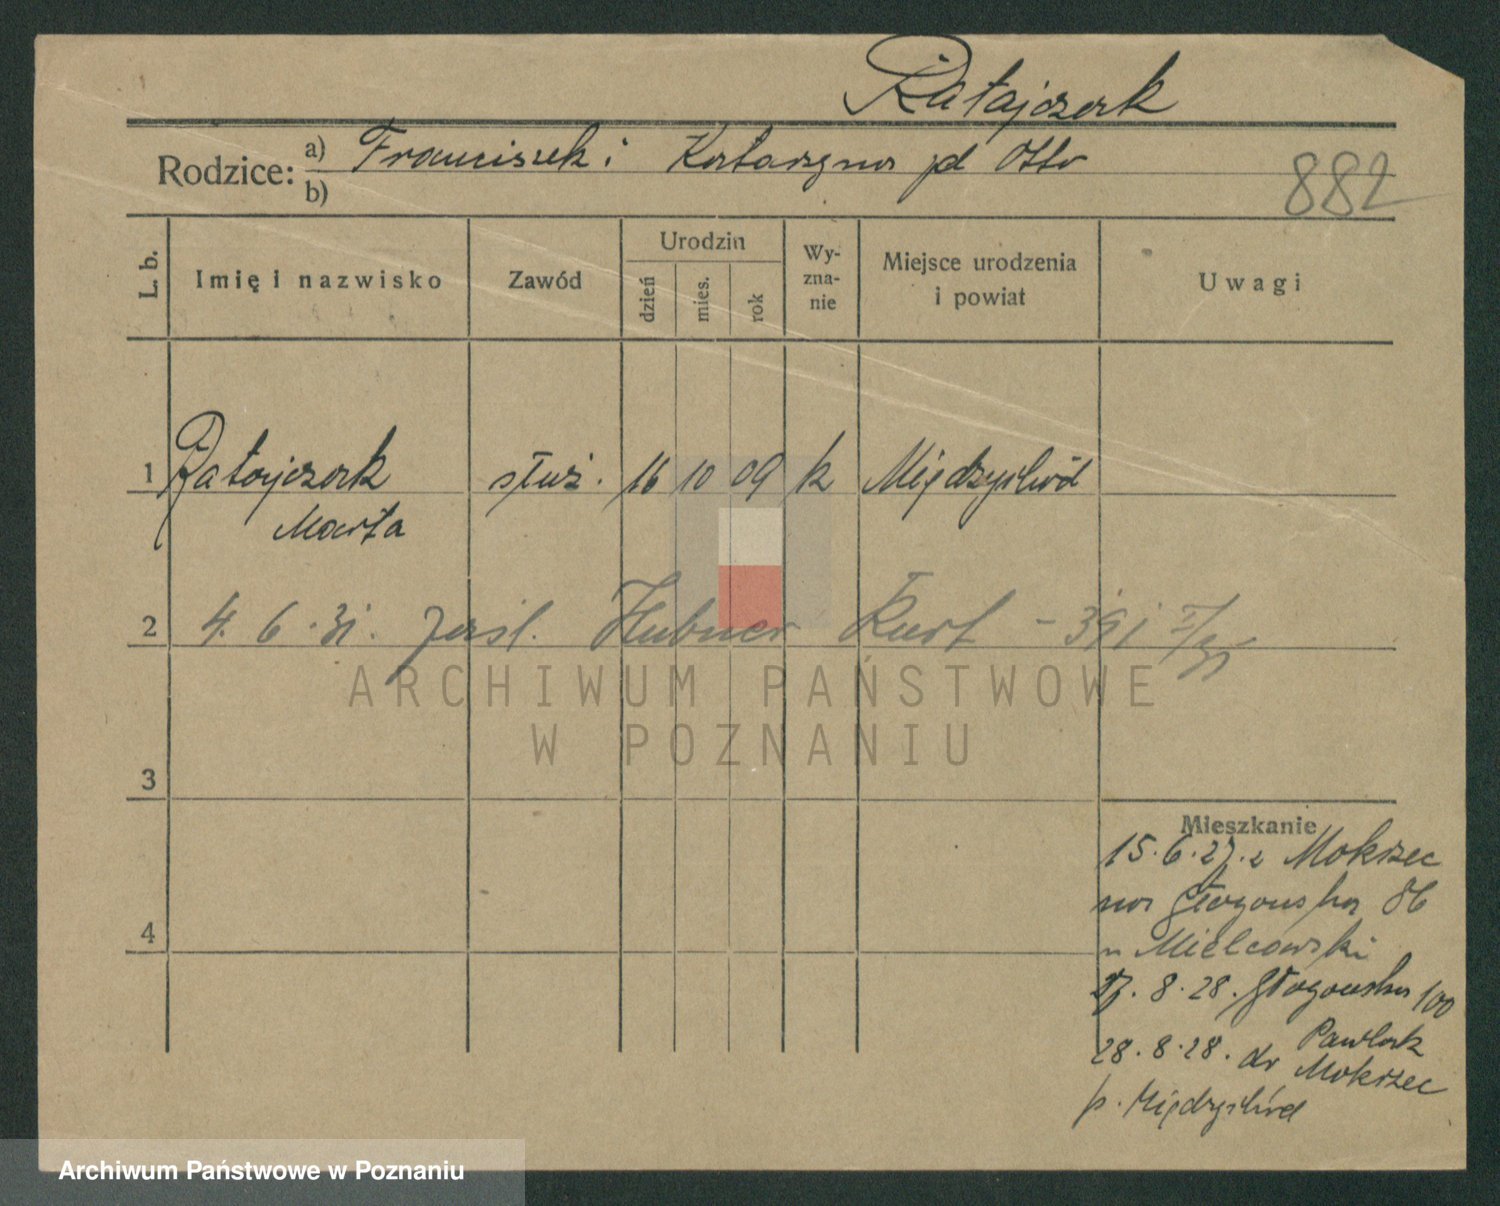 Ratajczak
Rodzice: a) Franciszek i Katarzyna zd Otto
b)
882
L. b.
Imię i nazwisko
Zawód
Urodzin
dzień
mies.
rok
Wy-
zna-
nie
Miejsce urodzenia
i powiat
Uwagi
1 Ratajczak służ. 16 10 09 k Międzychód
Marta
2 4. 6. 31. Hubner Kurt - 391
3
4
Mieszkanie
15. 6. 27. z Mokrzec
na Głogowska 86
u Mielcowski
27. 8. 28. Głogowska 100
Pawlak
28. 8. 28. do Mokrzec
p. Międzychód
ARCHIWUM PAŃSTWOWE
W POZNANIU
Archiwum Państwowe w Poznaniu